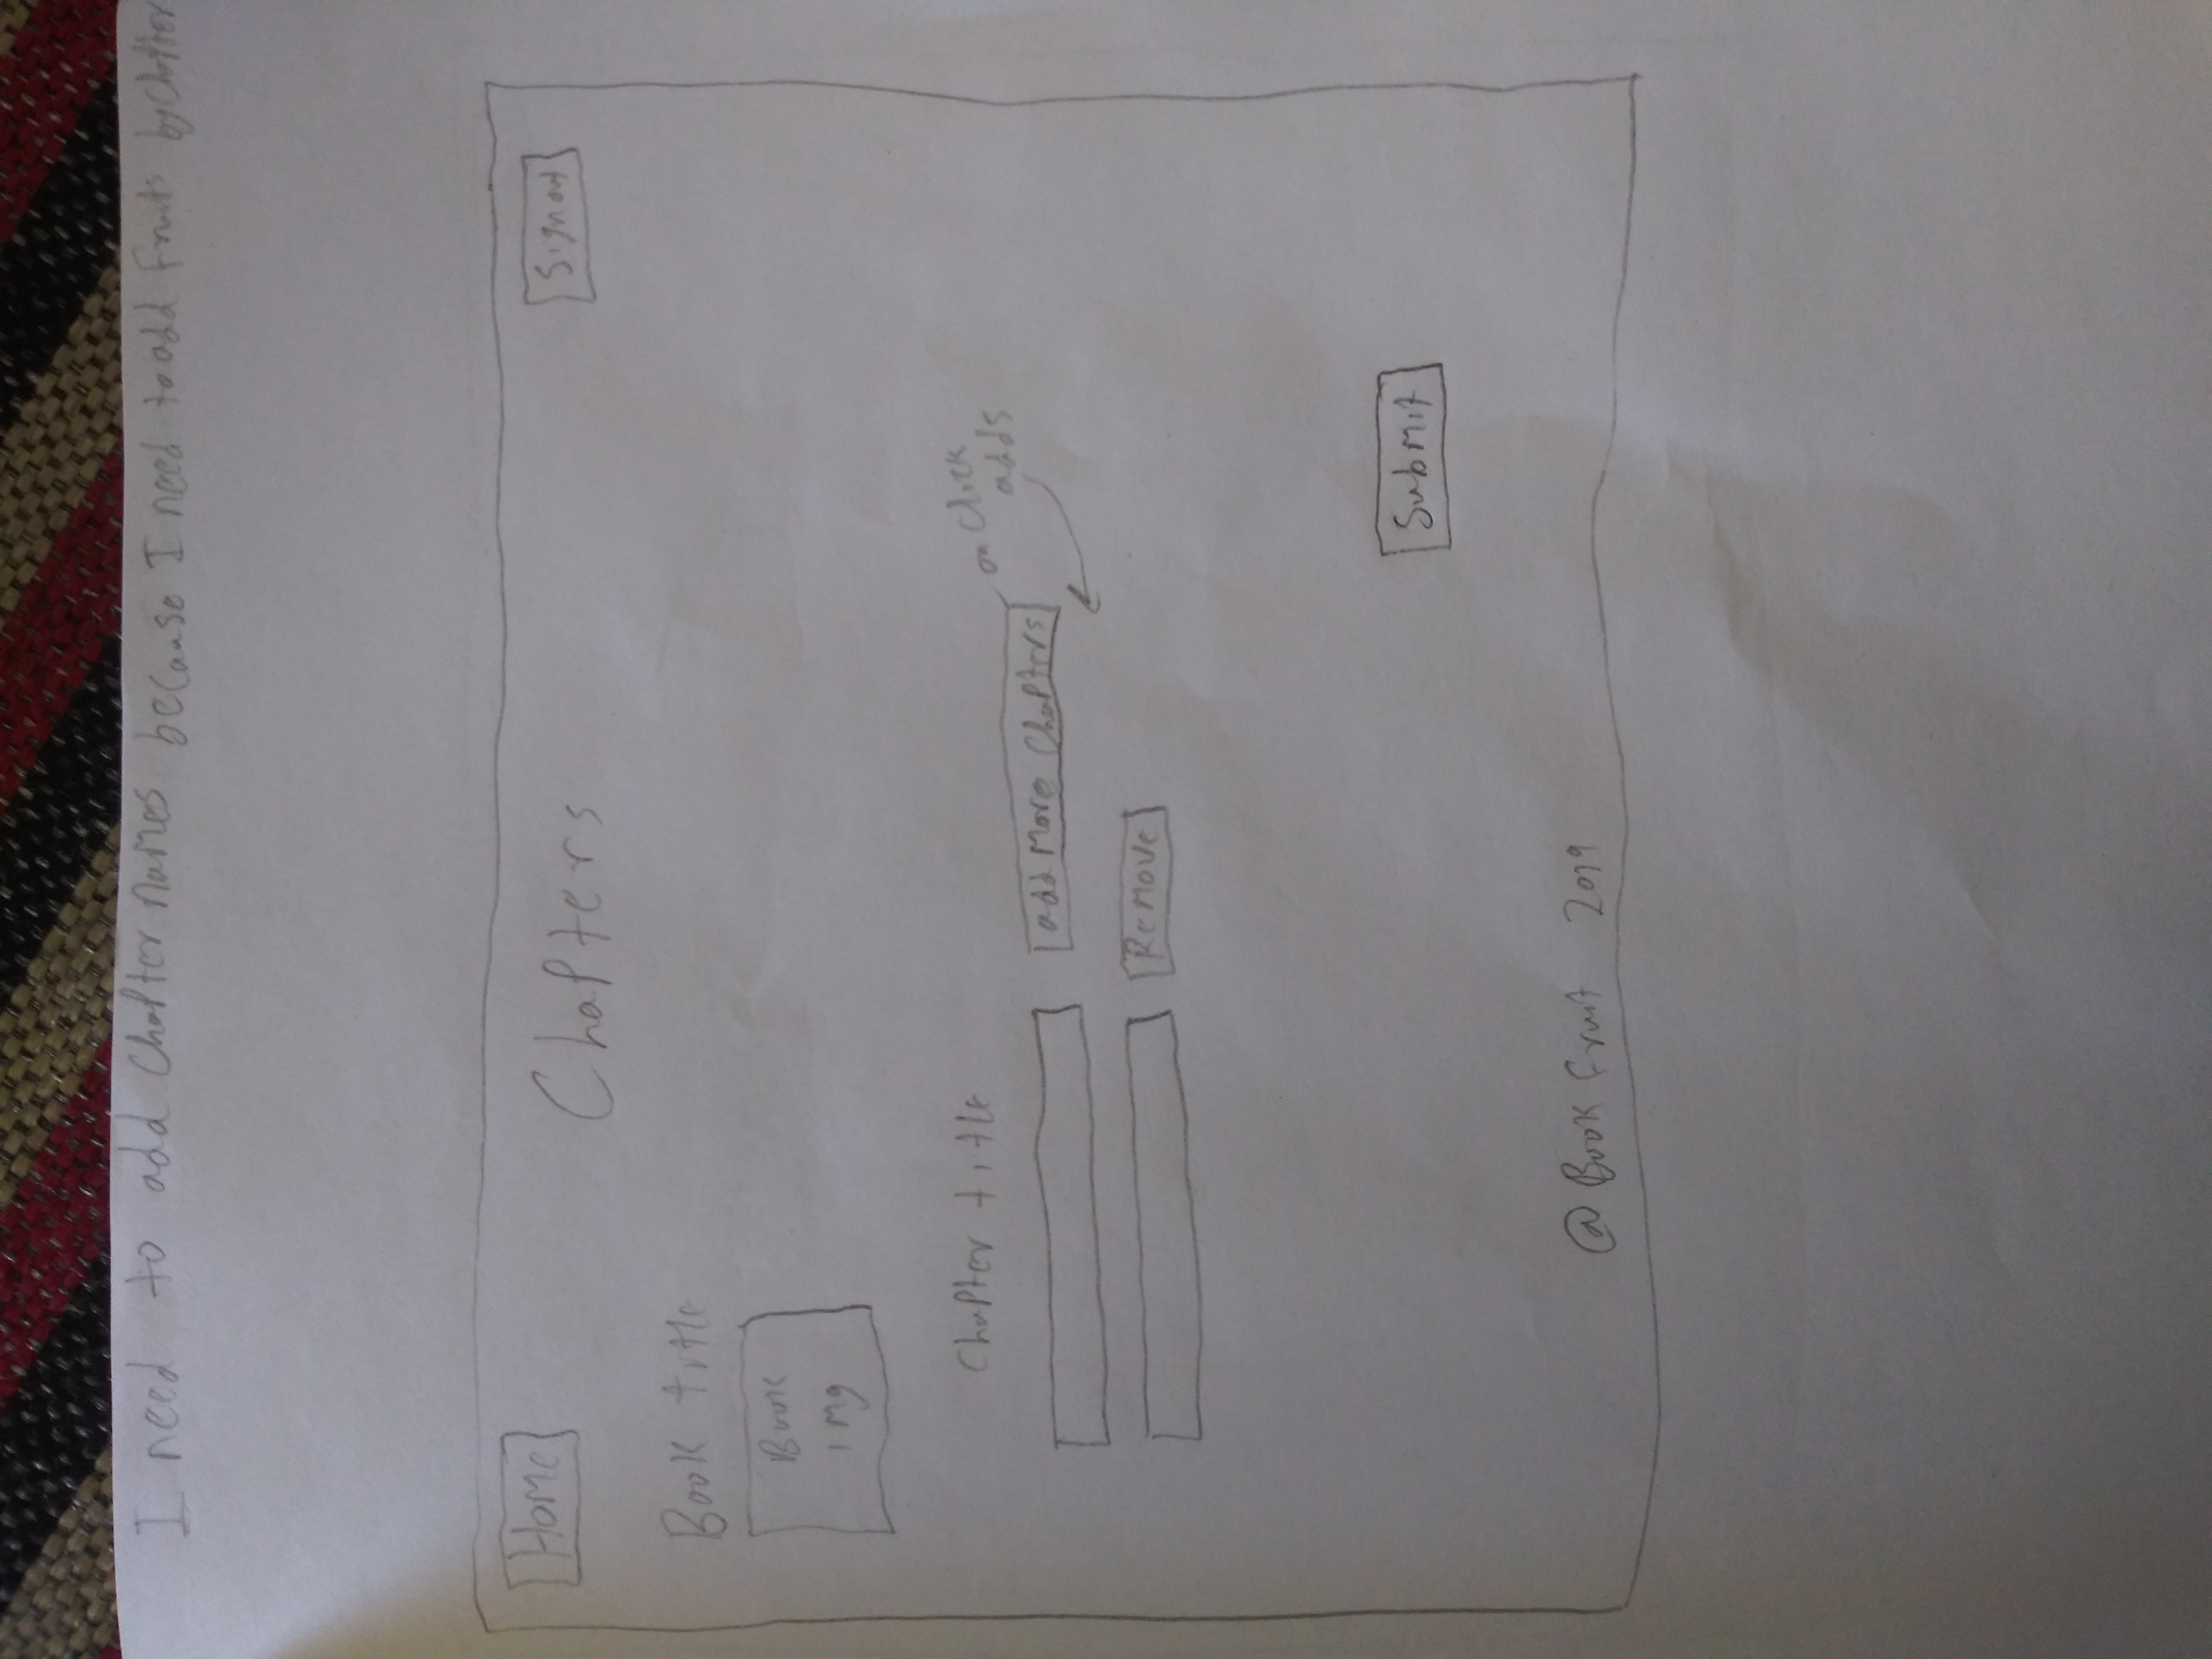 I need to add Chapter names because I need to add Fruits by Chapter
Home
Chapters
Signout
Book title
Book
img
Chapter title
on click
adds
add More Chapters
Remove
Submit
@ Book Fruit 2019